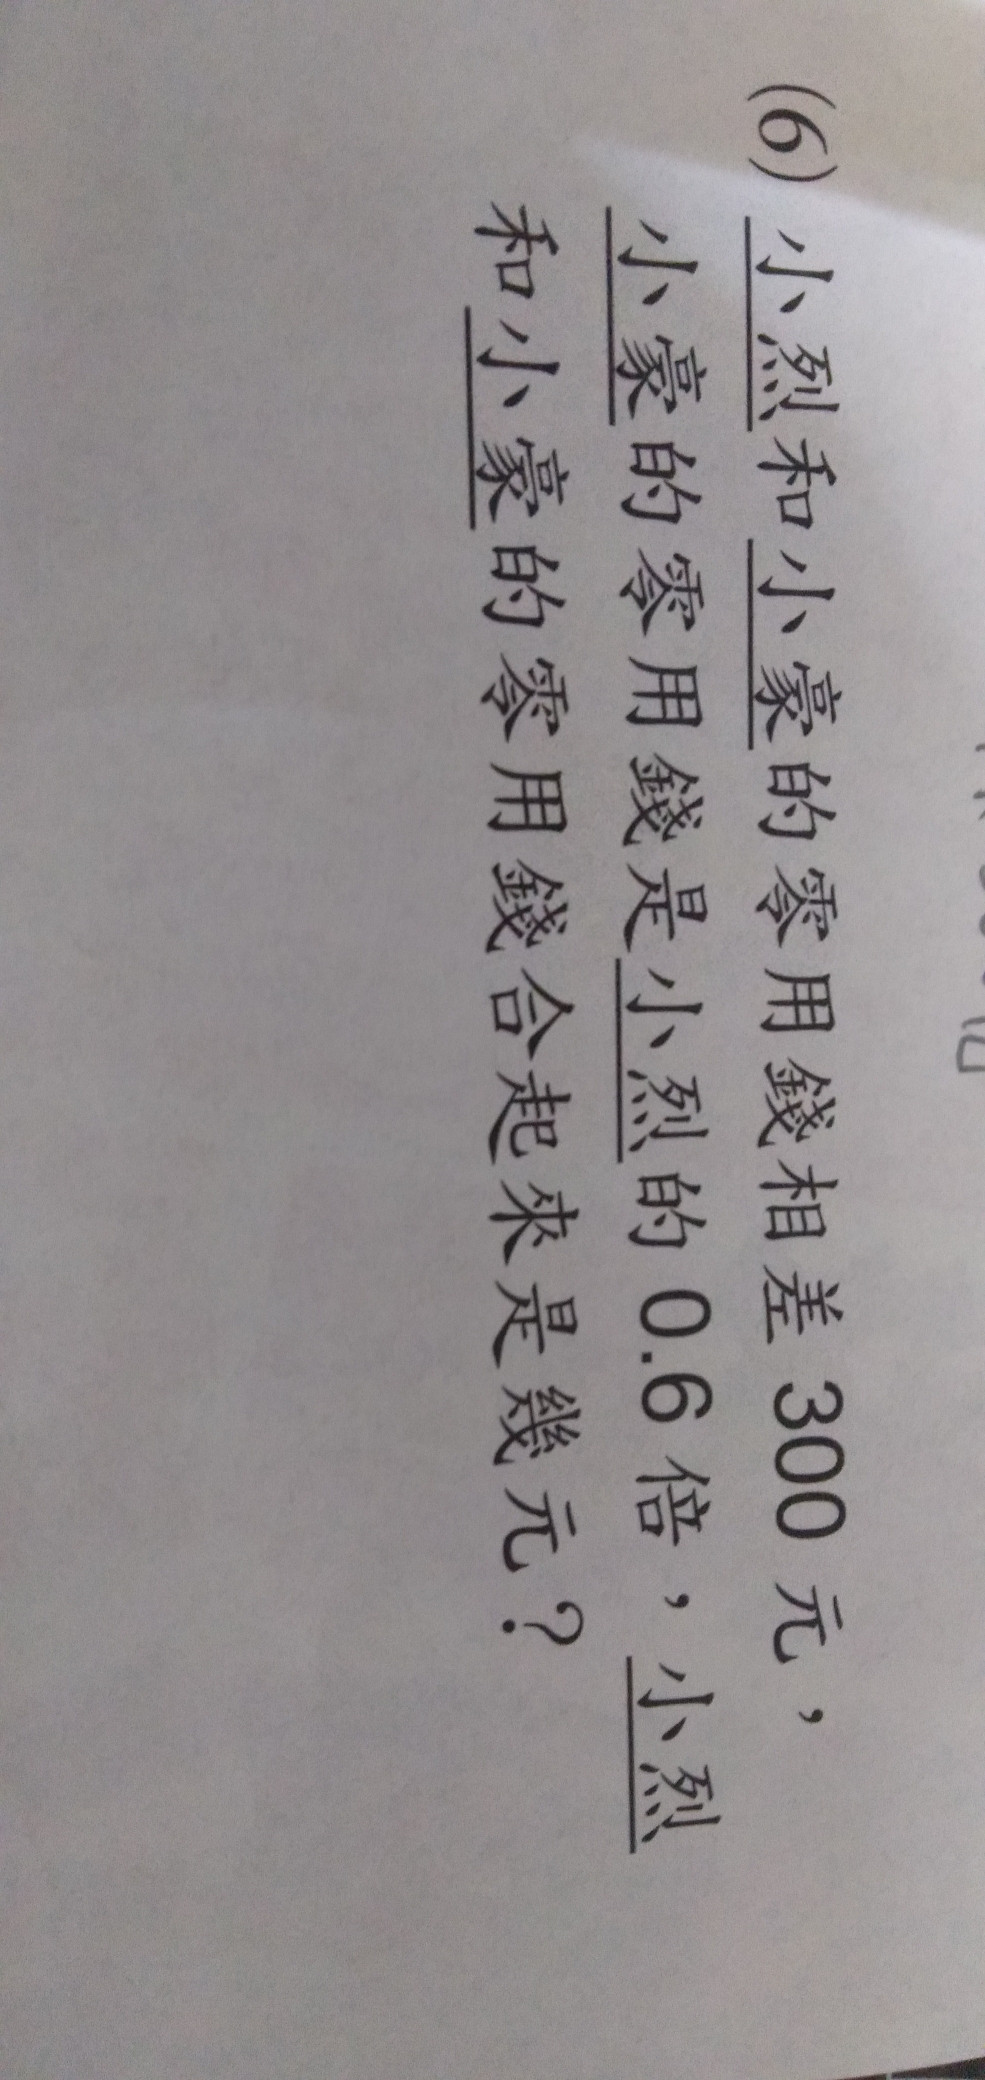 (6) 小烈和小豪的零用錢相差 300 元，
小豪的零用錢是小烈的 0.6 倍，小烈
和小豪的零用錢合起來是幾元？